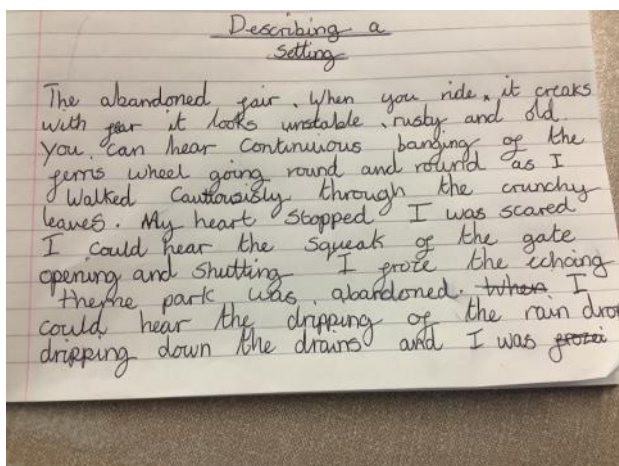 Describing a
Setting
The abandoned fair. When you ride, it creaks
with fear it looks unstable, rusty and old.
You can hear Continuous banging of the
ferris wheel going round and round as I
Walked Cautiously through the crunchy
leaves. My heart Stopped I was scared
I could hear the squeak of the gate
opening and shutting I froze the echoing
theme park was abandoned. When I
could hear the dripping of the rain drop
dripping down the drains and I was frozei